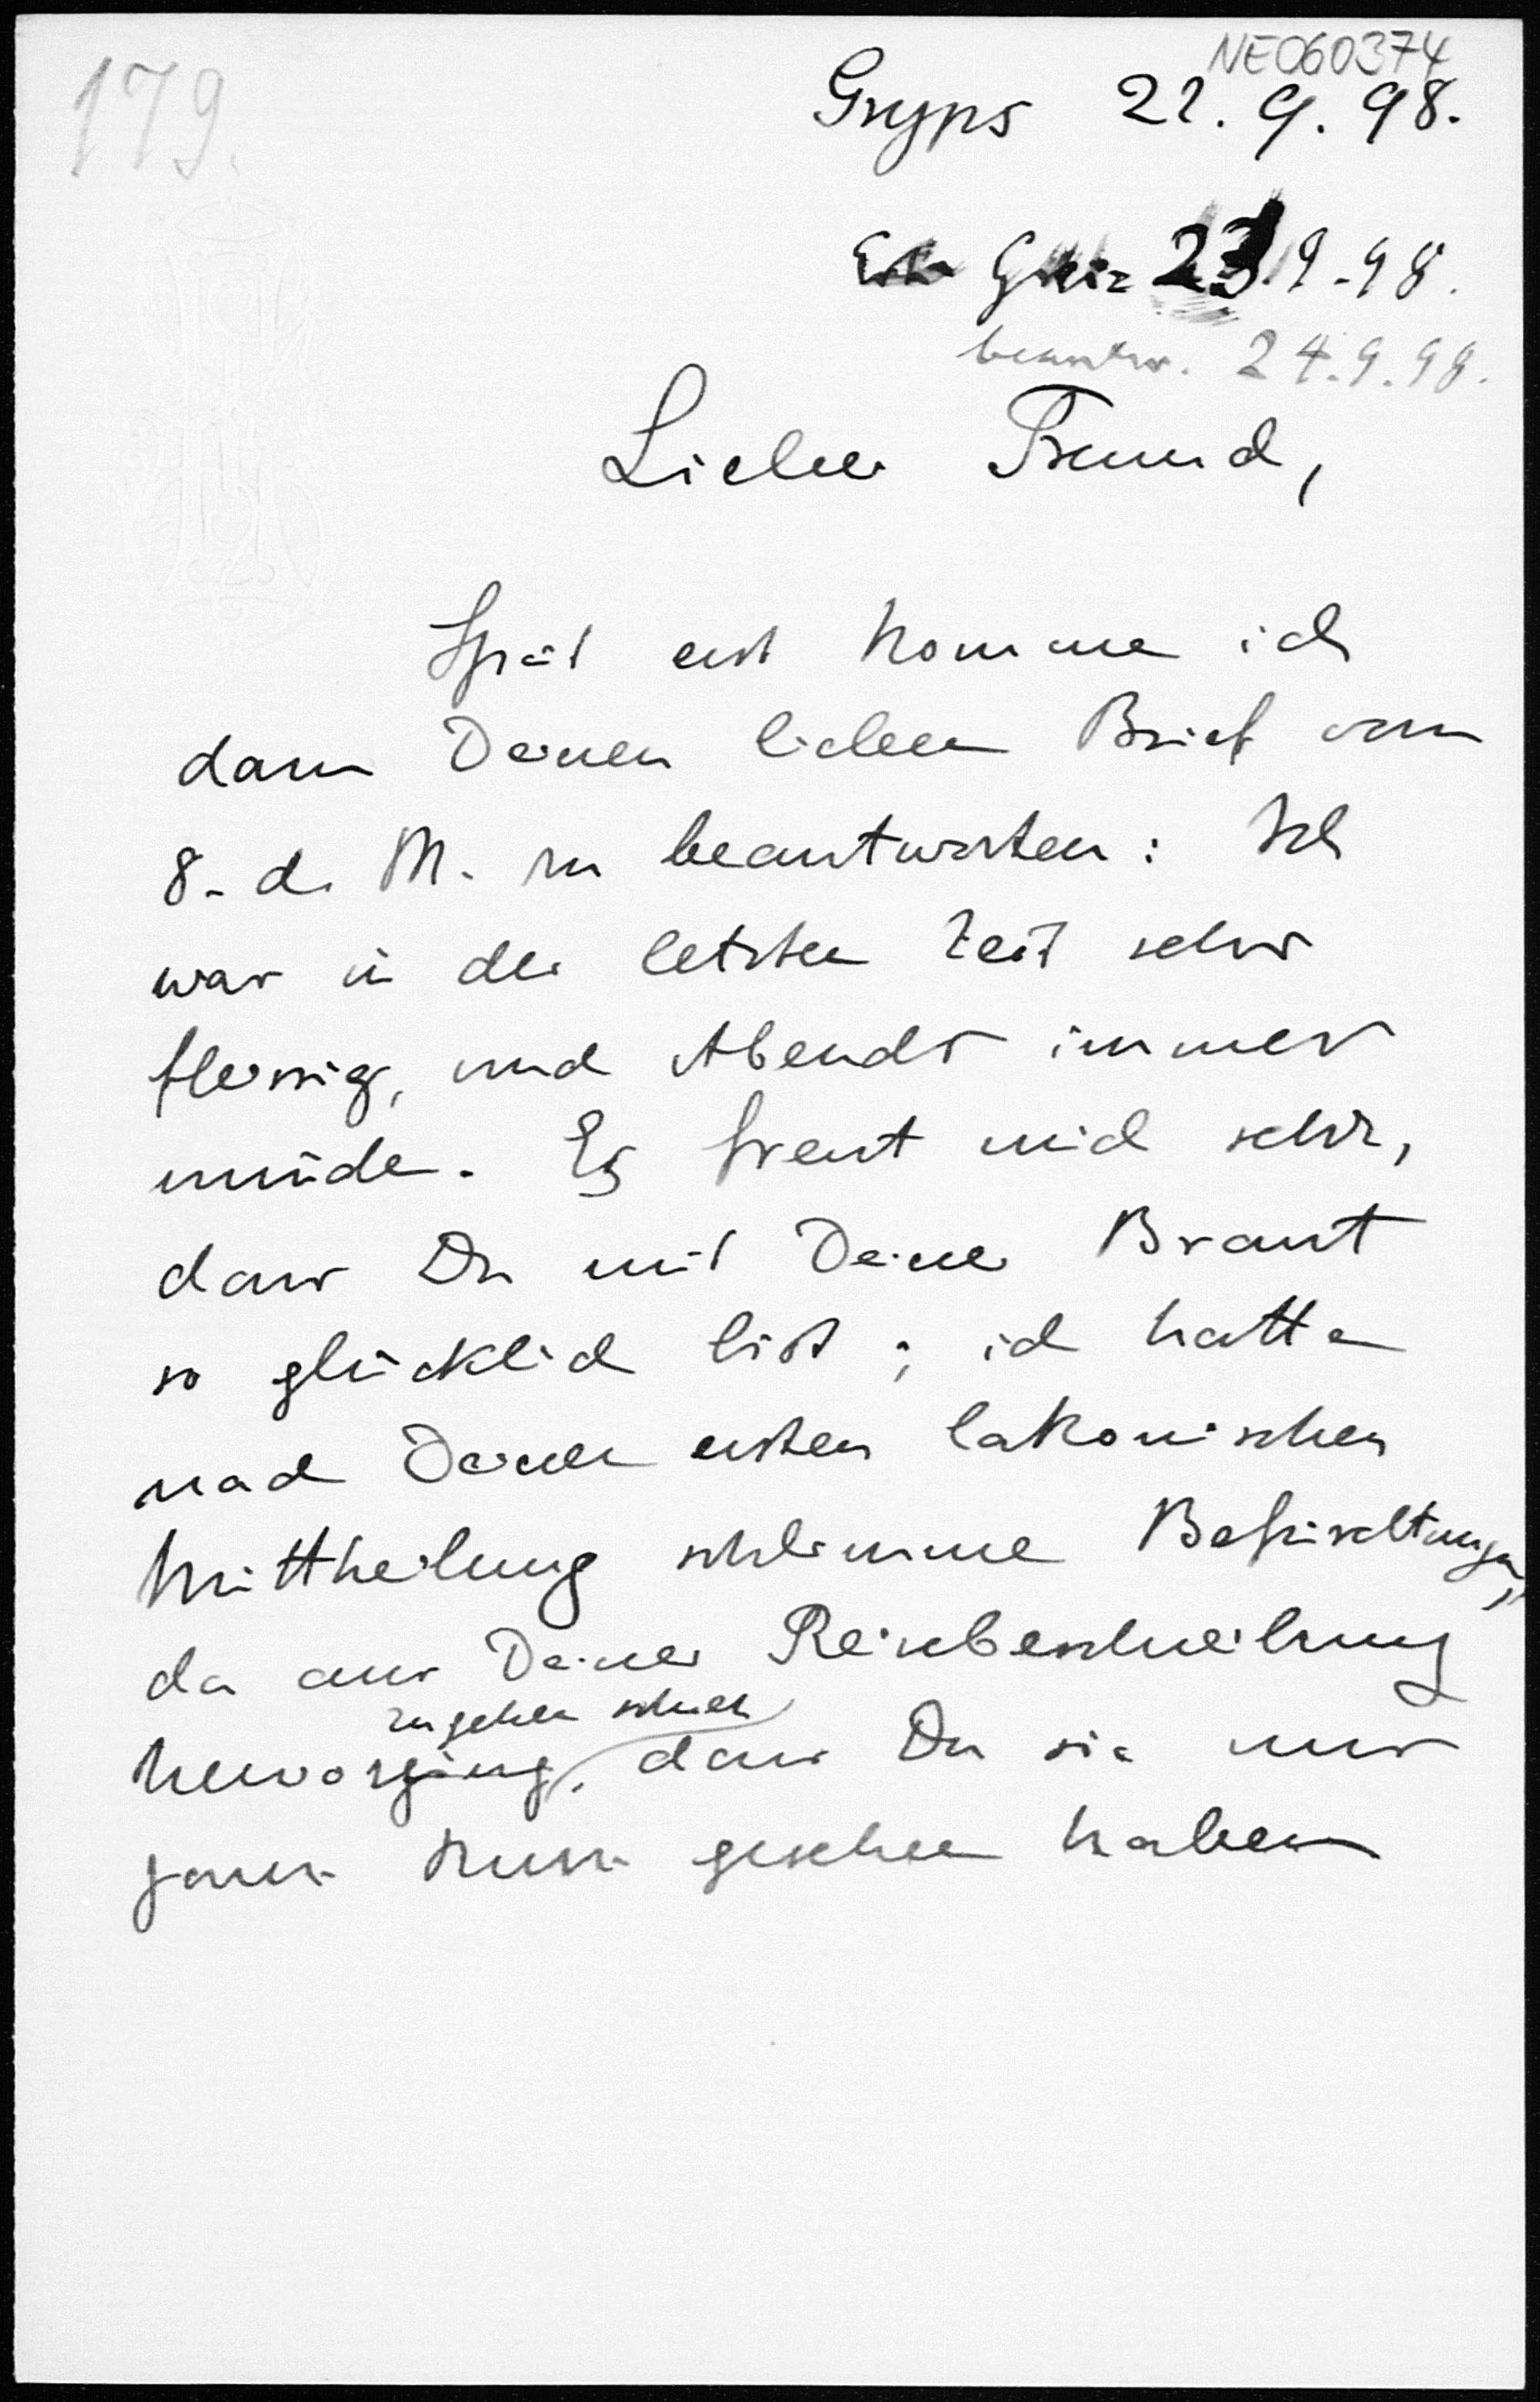 179.
NE060374
Gryps 22. 9. 98.
23.9.98.
beantw. 24.9.98.
Lieber Freund,
Spät erst komme ich
dazu Deinen lieben Brief vom
8. d. M. zu beantworten: Ich
war in der letzten Zeit sehr
fleissig, und Abends immer
müde. Es freut mich sehr,
dass Du mit Deiner Braut
so glücklich bist; ich hatte
nach Deiner ersten lakonischen
Mittheilung schlimme Befürchtungen,
da aus Deiner Reisebeschreibung
zugehen schien
hervorging, dass Du sie nur
ganz kurz gesehen haben